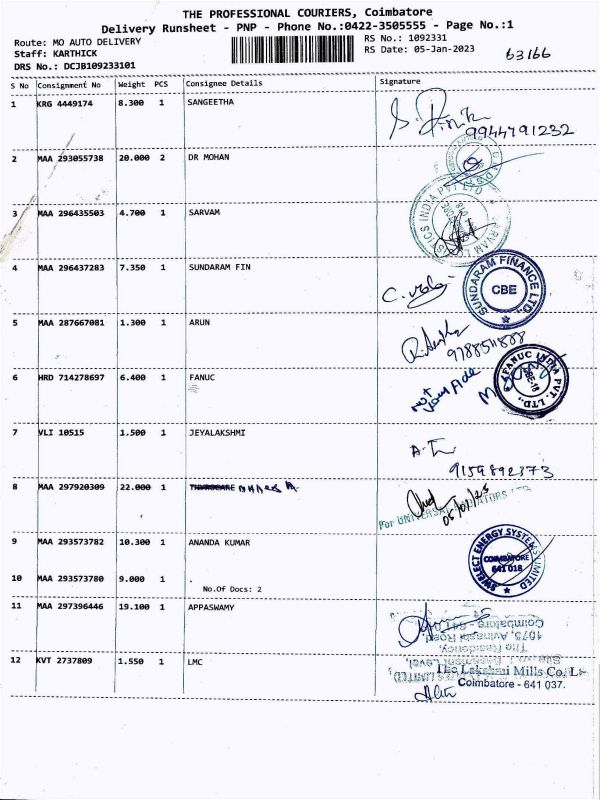 THE PROFESSIONAL COURIERS, Coimbatore
Delivery Runsheet - PNP - Phone No.:0422-3505555 - Page No.:1
Route: MO AUTO DELIVERY
RS No.: 1092331
Staff: KARTHICK
RS Date: 05-Jan-2023
63166
DRS No.: DCJB109233101
S No Consignment No Weight PCS Consignee Details Signature
1 KRG 4449174 8.300 1 SANGEETHA
9944791232
2 MAA 293055738 20.000 2 DR MOHAN
3 MAA 296435503 4.700 1 SARVAM
4 MAA 296437283 7.350 1 SUNDARAM FIN
SUNDARAM FINANCE LTD.,
CBE
5 MAA 287667081 1.300 1 ARUN
6 HRD 714278697 6.400 1 FANUC
FANUC INDIA PVT. LTD.,
7 VLI 10515 1.500 1 JEYALAKSHMI
9159892373
8 MAA 297920309 22.000 1
05/01/23
For UNIVERSAL
9 MAA 293573782 10.300 1 ANANDA KUMAR
SWELECT ENERGY SYSTEMS LIMITED
COIMBATORE
641 018
10 MAA 293573780 9.000 1 .
No.Of Docs: 2
11 MAA 297396446 19.100 1 APPASWAMY
Coimbatore
1073, Avinashi Road,
The Residency,
12 KVT 2737809 1.550 1 LMC
The Lakshmi Mills Co. L
Coimbatore - 641 037.